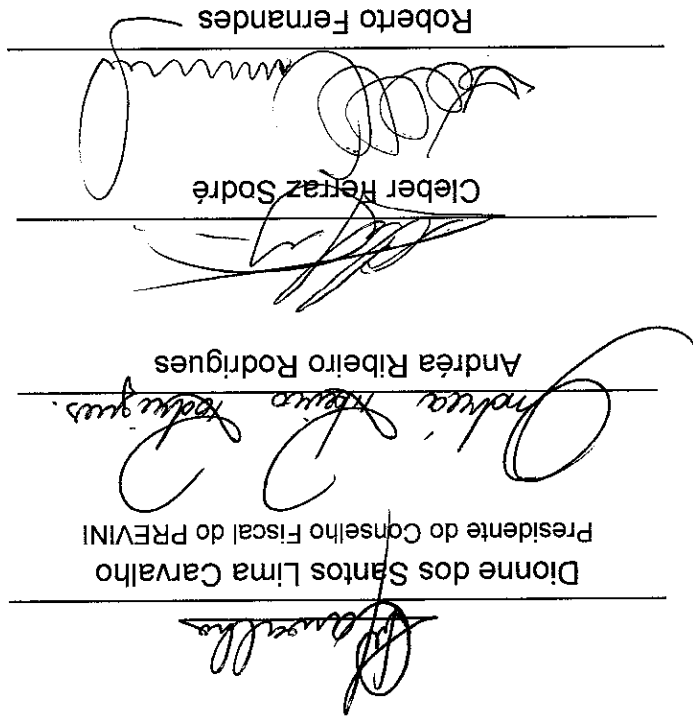 Carvalho
Dionne dos Santos Lima Carvalho
Presidente do Conselho Fiscal do PREVINI
Andréa Ribeiro Rodrigues.
Andréa Ribeiro Rodrigues
Cleber Ferraz Sodré
Roberto Fernandes